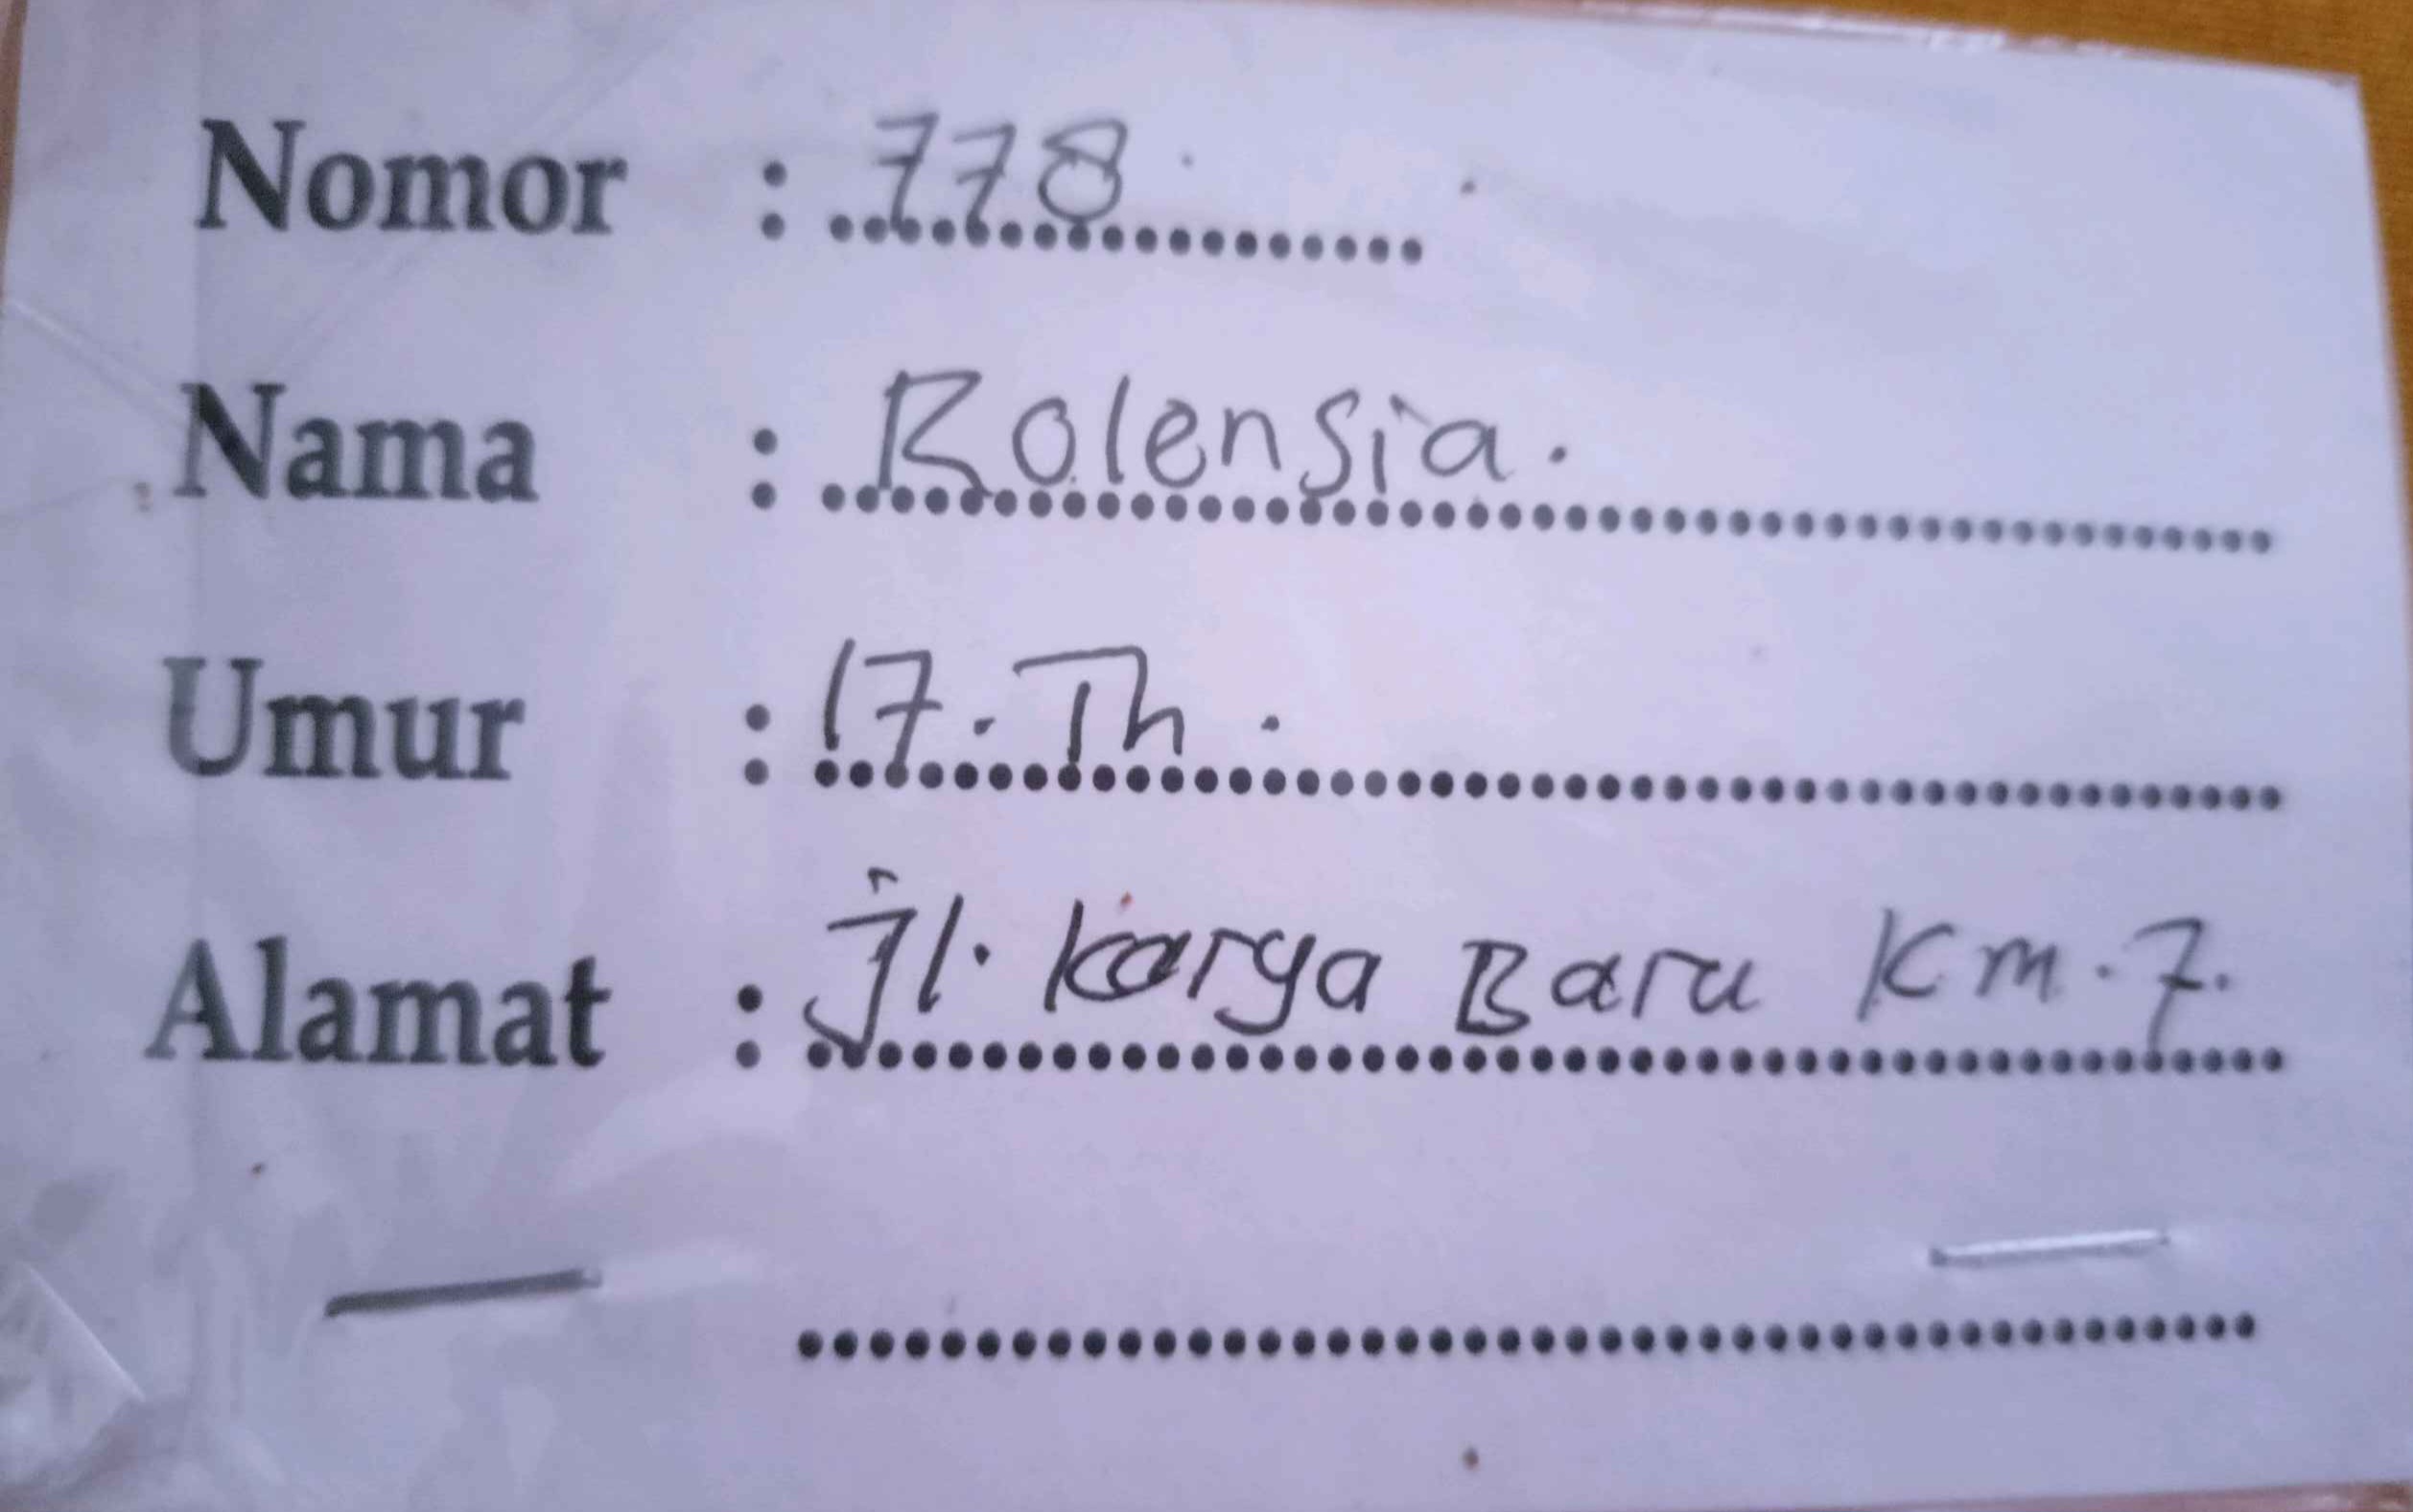 Nomor : 778.
Nama : Rolensia.
Umur : 17. Th.
Alamat : Jl. Karya Baru Km. 7.